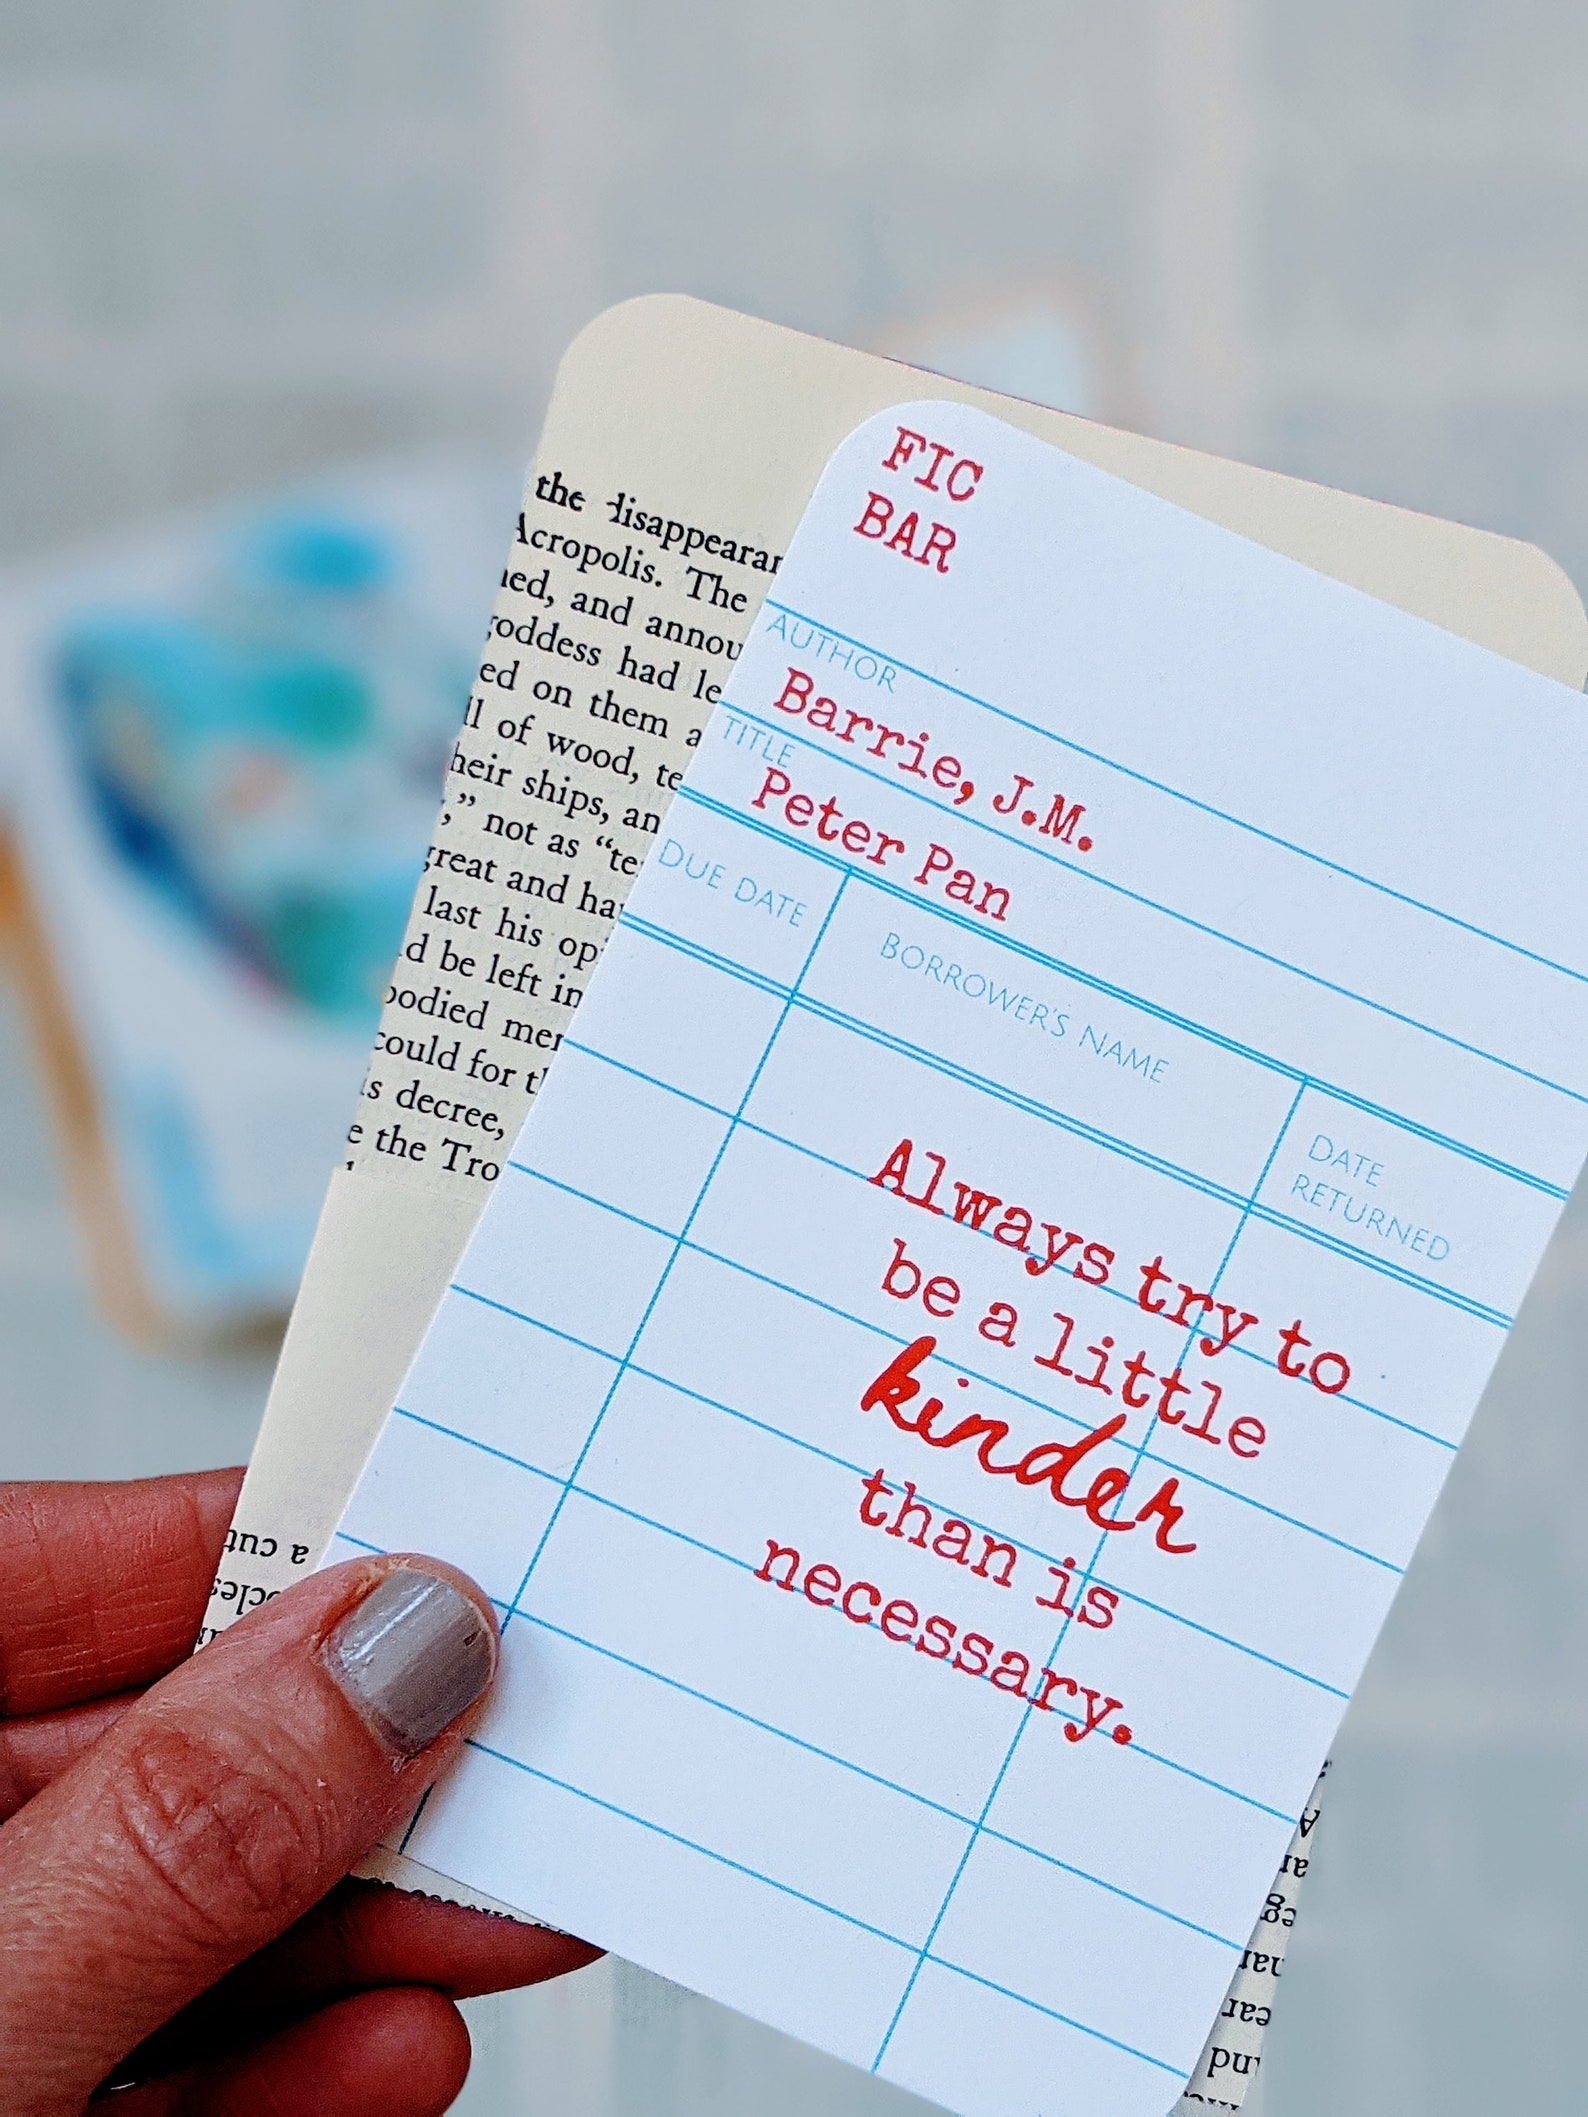 FIC
BAR
AUTHOR
Barrie, J.M.
TITLE
Peter Pan
DUE DATE
BORROWER'S NAME
DATE
RETURNED
Always try to
be a little
kinder
than is
necessary.
the disappear
Acropolis. The
ned, and annou
goddess had le
ed on them a
ll of wood, te
heir ships, an
;" not as "te
great and ha
last his op
d be left in
bodied mer
could for t
is decree,
e the Tro
a cut